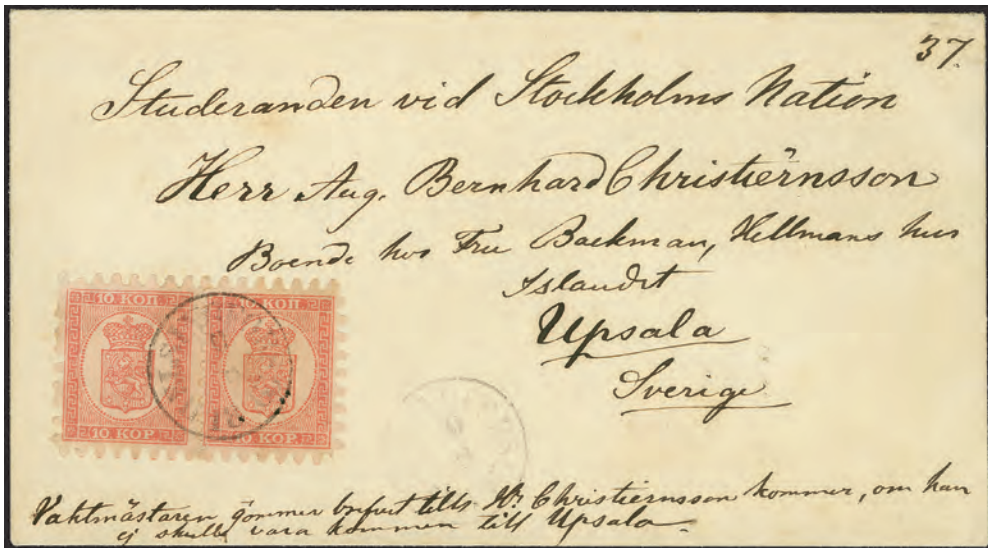 37.
Studeranden vid Stockholms Nation
Herr Aug. Bernhard Christiernsson
Boende hos Fru Backman, Hellmans hus
Islandet
Upsala
Sverige
10 КОП. 10 КОП.
10 KOP. 10 KOP.
Vaktmästaren gömmer brefvet tills Hr. Christiernsson kommer, om han
ej skulle vara kommen till Upsala